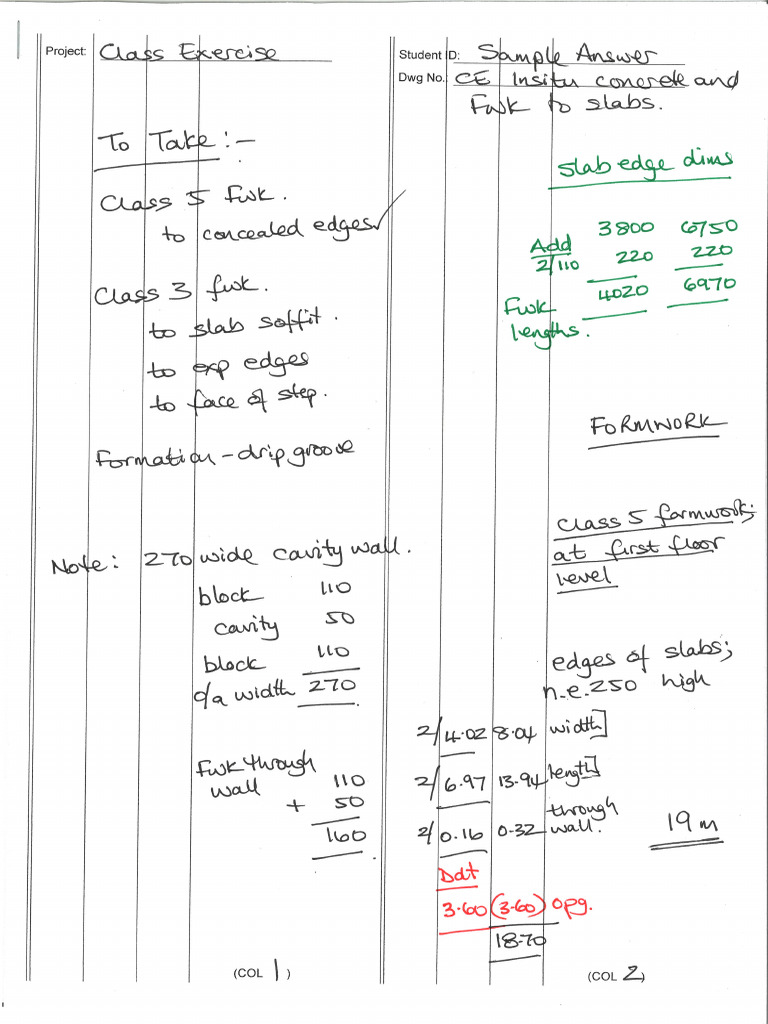 Project: Class Exercise
To Take :-
Class 5 Fwk.
to concealed edges
Class 3 fwk.
to slab soffit.
to exp edges
to face of step.
Formation - drip groove
Note: 270 wide cavity wall.
block 110
cavity 50
block 110
o/a width 270
Fwk through
wall 110
+ 50
160
(COL 1)
Student ID: Sample Answer
Dwg No. CE Insitu concrete and
Fwk to slabs.
slab edge dims
3800 6750
Add
2/110 220 220
4020 6970
Fwk
lengths.
FORMWORK
Class 5 formwork;
at first floor
level
edges of slabs;
n.e. 250 high
2/ 4.02 8.04 width]
2/ 6.97 13.94 length]
2/ 0.16 0.32 through
wall. 19 m
Ddt
3.60 (3.60) opg.
18.70
(COL 2)